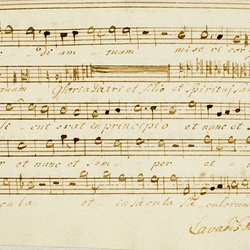 di am tuam mise ri cor
tuam Gloria Patri et filio et Spiritui San
si cut erat in principio et nunc et
et nunc et sem per et
cula et in saecula saeculorum